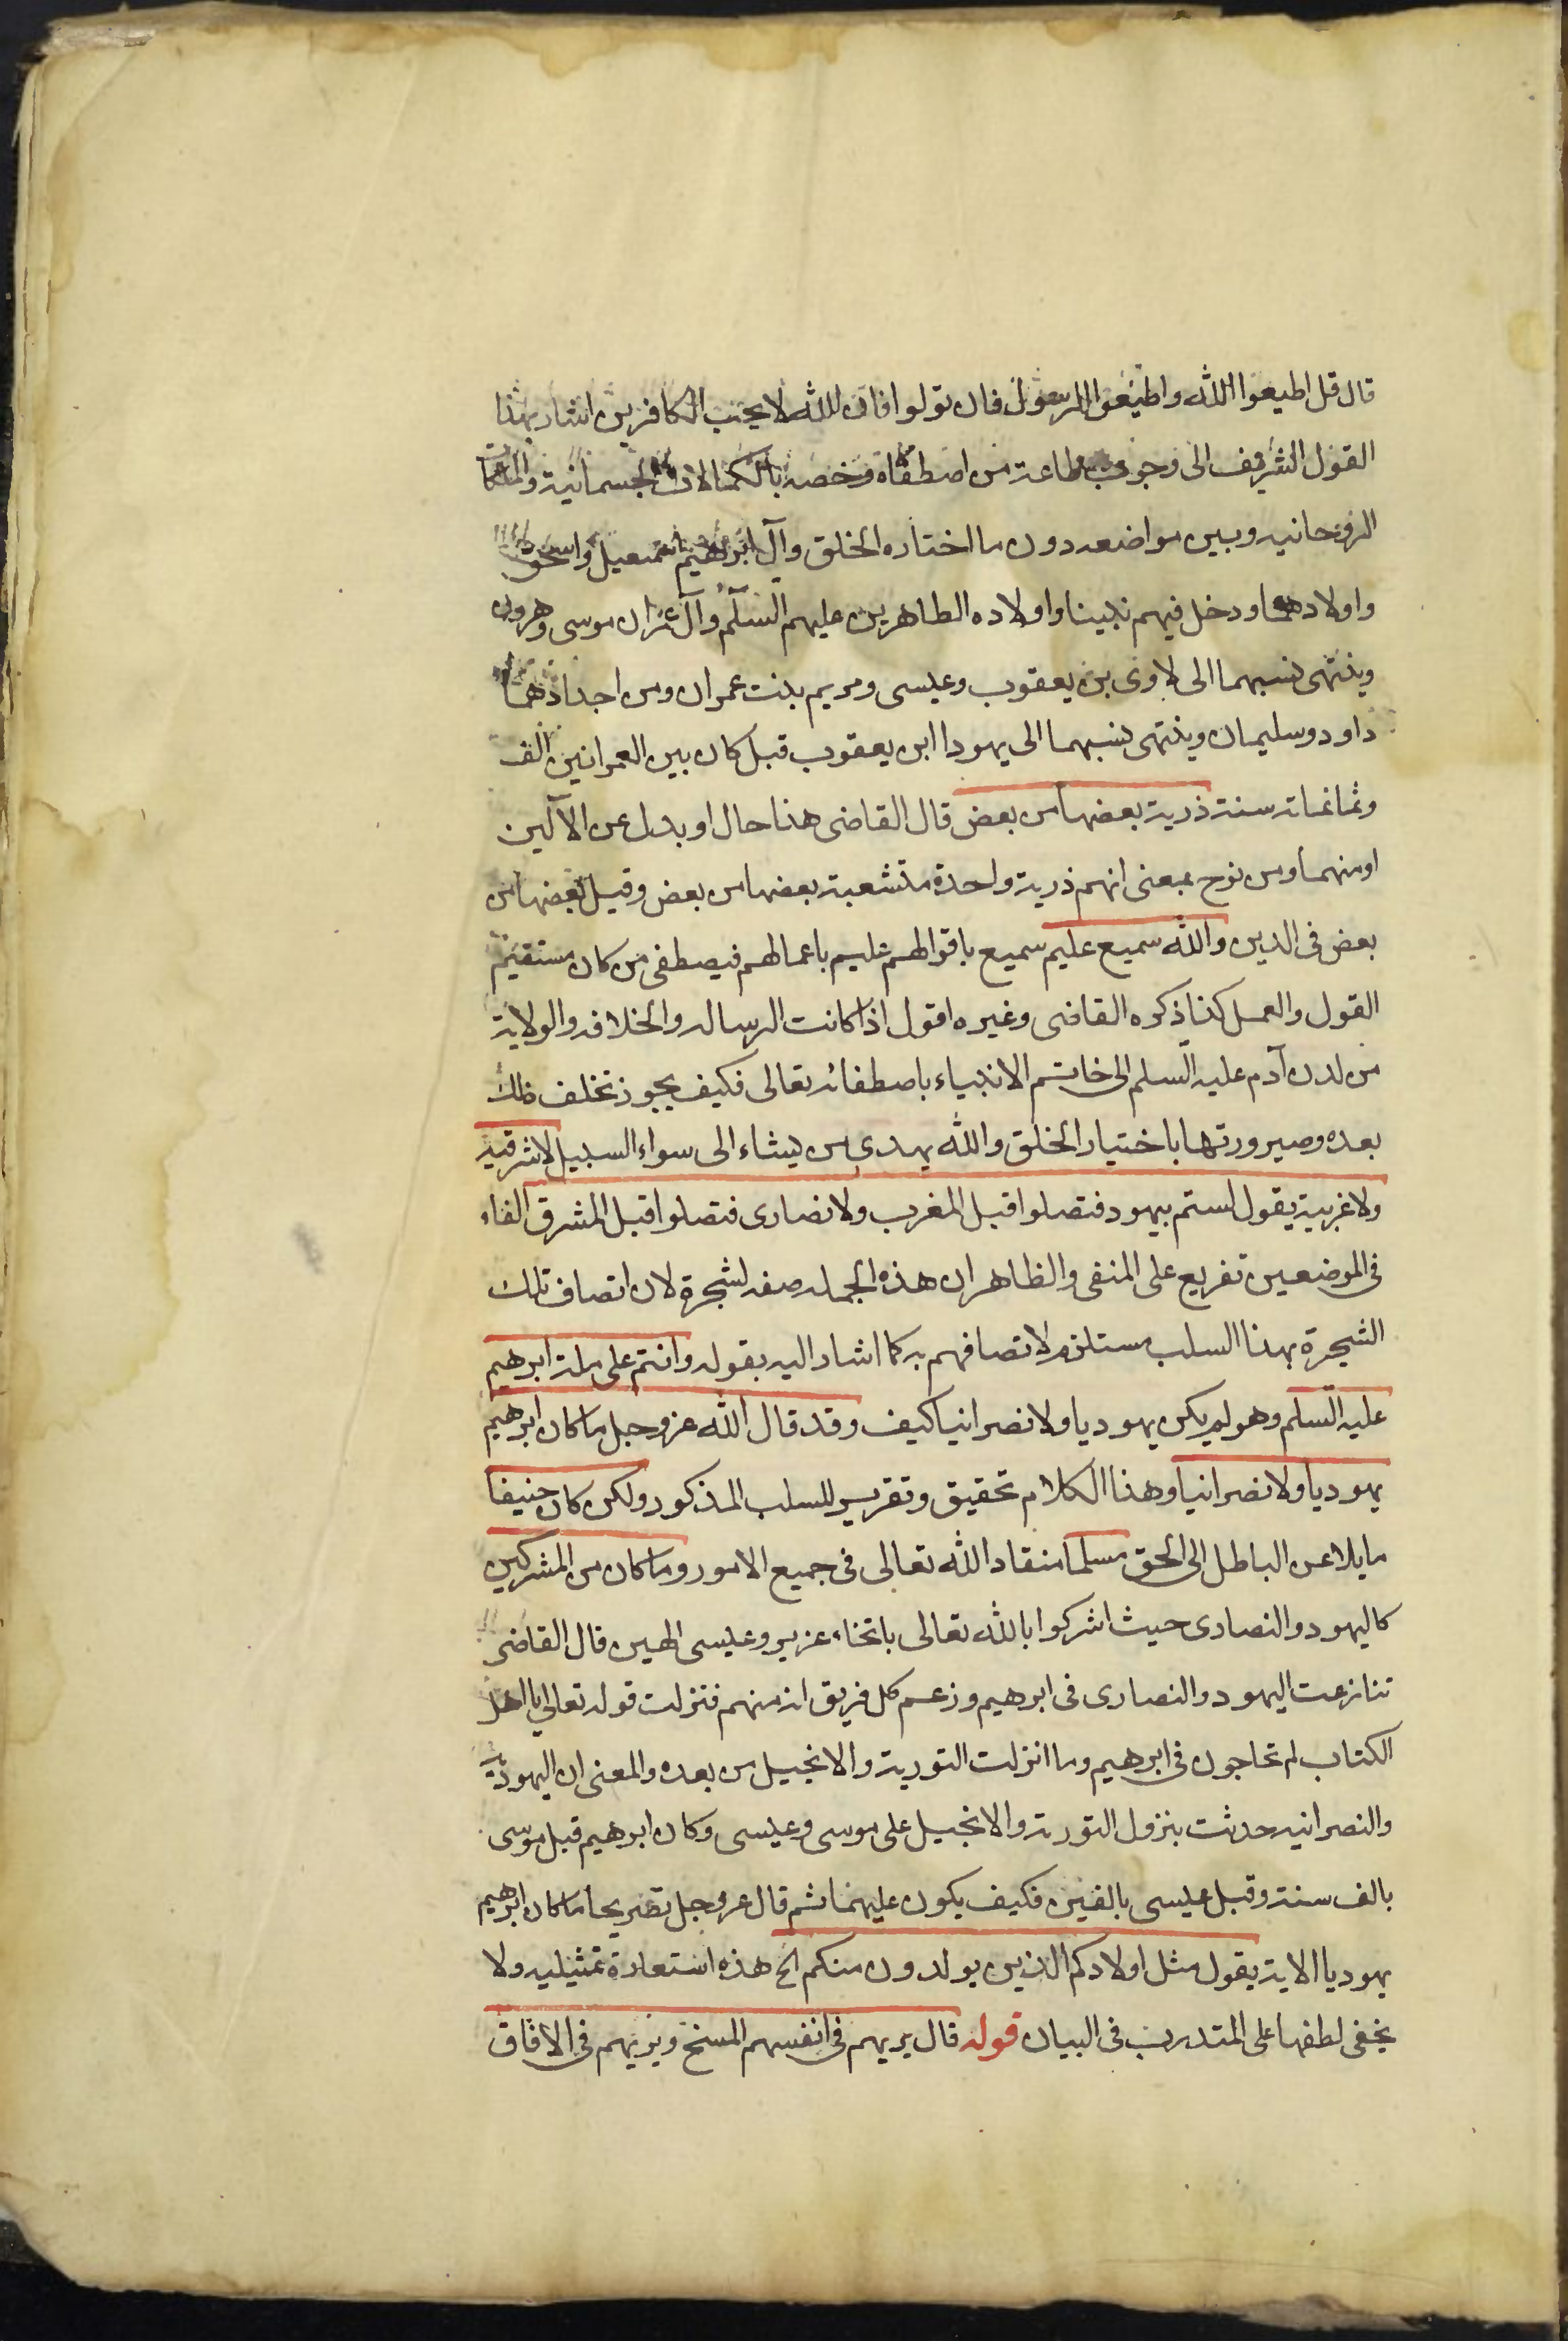 قال قل اطيعوا الله واطيعوا الرسول فان تولوا فان الله لا يحب الكافرين اشار بهذا
القول الشريف الى وجوب طاعة من اصطفاه وخصه بالكمالات الجسمانية والملكات
الروحانيه وبين مواضعه دون ما اختاره الخلق وآل ابرهيم اسمعيل واسحق
واولادهما ودخل فيهم نبينا واولاده الطاهرين عليهم السلم وآل عمران موسى وهرون
وينتهى نسبهما الى لاوى بن يعقوب وعيسى ومريم بنت عمران ومن اجدادهما
داود وسليمان وينتهى نسبهما الى يهودا ابن يعقوب قبل كان بين العمرانين الف
وثمانمائة سنة ذرية بعضها من بعض قال القاضى هذا حال او بدل عن الآلين
او منهما ومن نوح بمعنى انهم ذرية واحدة متشعبة بعضها من بعض وقيل بعضها من
بعض فى الدين والله سميع عليم سميع باقوالهم عليم باعمالهم فيصطفى من كان مستقيم
القول والعمل كذا ذكره القاضى وغيره اقول اذا كانت الرسالة والخلافة والولاية
من لدن آدم عليه السلم الى خاتم الانبياء باصطفائه تعالى فكيف يجوز تخلف ذلك
بعده وصيرورتها باختيار الخلق والله يهدى من يشاء الى سواء السبيل لا شرقية
ولا غربية يقول لستم بيهود فتصلوا قبل المغرب ولا نصارى فتصلوا قبل المشرق الفاء
فى الموضعين تفريع على المنفى والظاهر ان هذه الجملة صفة لشجرة لان اتصاف تلك
الشجرة بهذا السلب مستلزم لاتصافهم به كما اشار اليه بقوله وانتم على ملة ابرهيم
عليه السلم وهو لم يكن يهوديا ولا نصرانيا كيف وقد قال الله عز وجل ما كان ابرهيم
يهوديا ولا نصرانيا وهذا الكلام تحقيق وتقرير للسلب المذكور ولكن كان حنيفا
مايلا عن الباطل الى الحق مسلما منقادا لله تعالى فى جميع الامور وما كان من المشركين
كاليهود والنصارى حيث اشركوا بالله تعالى باتخاذ عزير وعيسى الهين قال القاضى
تنازعت اليهود والنصارى فى ابرهيم وزعم كل فريق انه منهم فنزلت قوله تعالى يا اهل
الكتاب لم تحاجون فى ابرهيم وما انزلت التورية والانجيل من بعده والمعنى ان اليهودية
والنصرانيه حدثت بنزول التورية والانجيل على موسى وعيسى وكان ابرهيم قبل موسى
بالف سنة وقبل عيسى بالفين فكيف يكون عليهما ثم قال عز وجل تصريحا ما كان ابرهيم
يهوديا الاية يقول مثل اولادكم الذين يولدون منكم الخ هذه استعارة تمثيليه ولا
يخفى لطفها على المتدرب فى البيان قوله قال يريهم فى انفسهم المسخ ويريهم فى الافاق